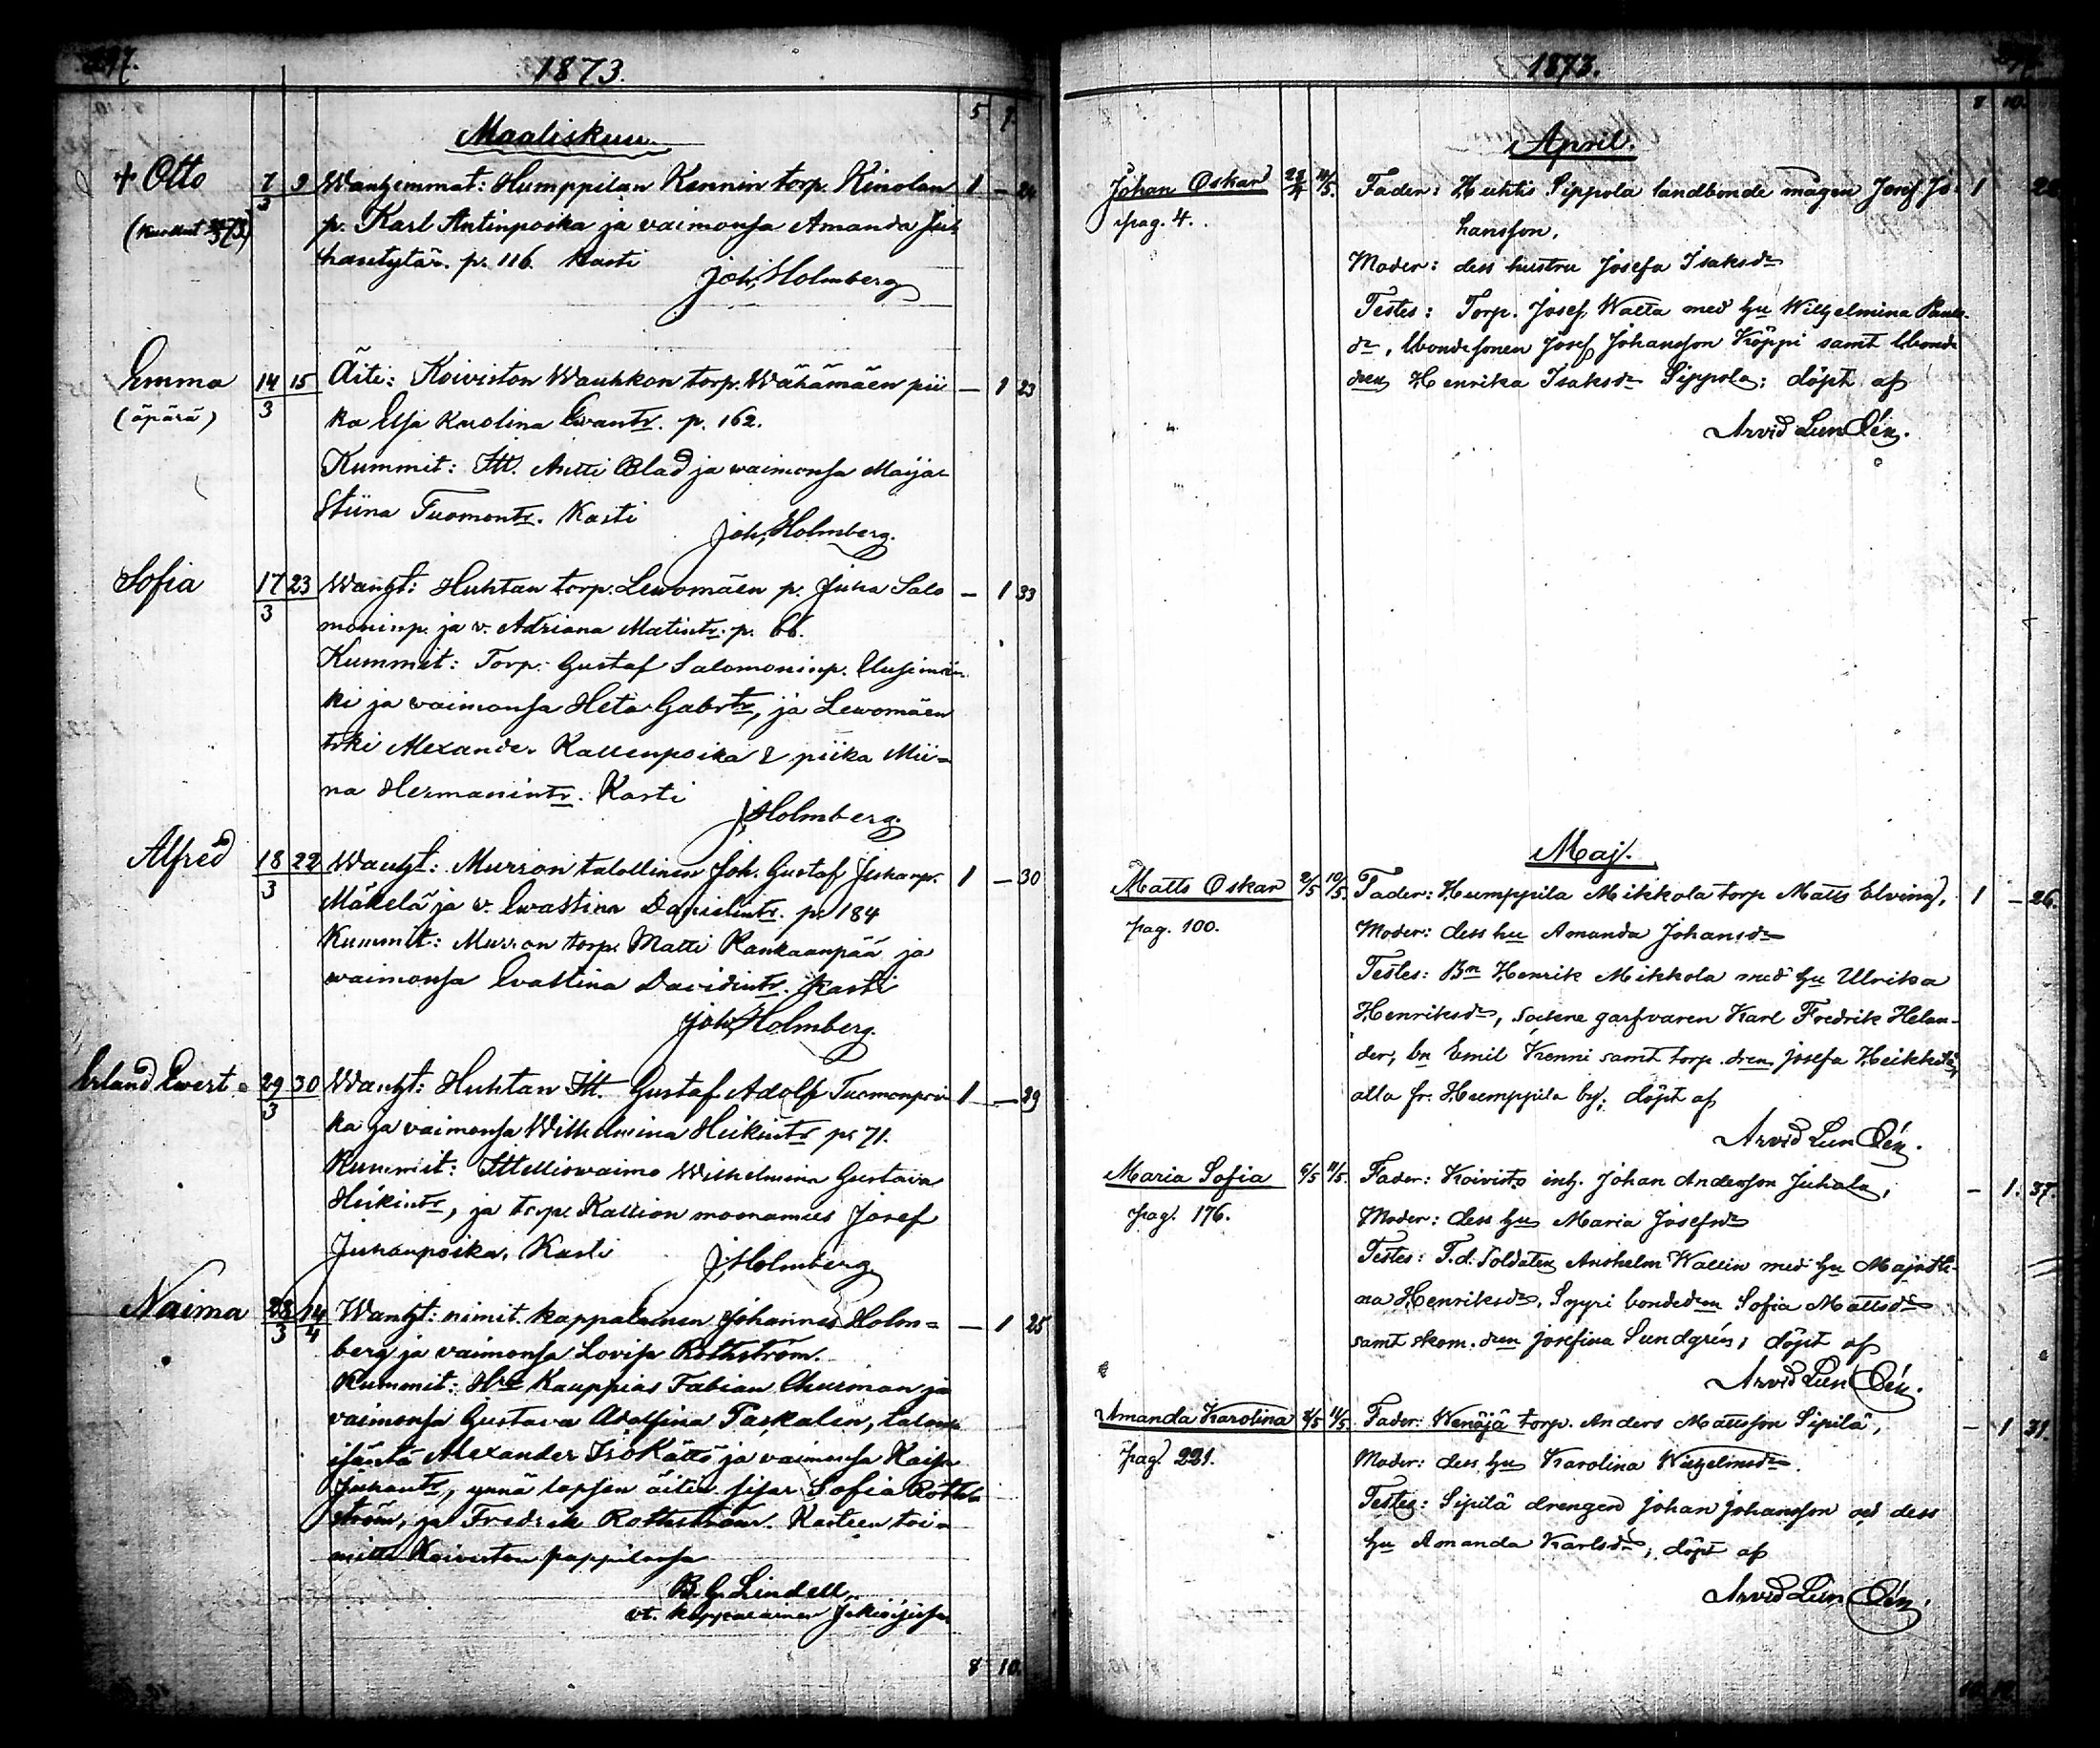 1873.
5 7.
Maaliskuu.
+ Otto 7/3 9 Wanhemmat: Humppilan Kennin torp. Kinolan 1 – 24
p. Karl Antinpoika ja vaimonsa Amanda Ju-
hantytär. p. 116. Kasti
Joh. Holmberg
Emma 14/3 15 Äiti: Koiviston Wauhkon torp. Wähämäen pii – 1 23
(äpärä) ka Elsa Karolina Ewantr. p. 162.
Kummit: Itt. Antti Blad ja waimonsa Maija-
Stiina Tuomontr. Kasti
Joh. Holmberg.
Sofia 17/3 23 Wanht: Huhtan torp. Lewomäen p. Juha Salo – 1 33
moninp. ja v. Adriana Matintr. p. 66.
Kummit: Torp. Gustaf Salomoninp. Uusimän-
ki ja vaimonsa Heta Gabrtr, ja Lewomäen
trki Alexander Kallenpoika & piika Mii-
na Hermanintr. Kasti
J. Holmberg.
Alfred 18/3 22 Wanht: Murron talollinen Joh. Gustaf Juhanp. 1 – 30
Mäkelä ja v. Evastina Danielintr. p. 184
Kummit: Murron torp. Matti Kankaanpää ja
waimonsa Evastina Davidintr. Kasti
Joh. Holmberg.
Erland Evert 29/3 30 Wanht: Huhtan Itt. Gustaf Adolf Tuomonpoi- 1 – 29
ka ja vaimonsa Wilhelmina Heikintr p. 71.
Kummit: Ittelliswaimo Wilhelmina Gustava
Heikintr, ja torp. Kallion moonamies Josef
Juhanpoika. Kasti
J. Holmberg.
Naima 28/3 14/4 Wanht: nimit. kappalainen Johannes Holm= – 1 25
berg ja vaimonsa Lovisa Rothström.
Kummit: Hra Kauppias Fabian Churman ja
vaimonsa Gustava Adolfina Paskalen, talon
isäntä Alexander Isokättö ja vaimonsa Kaisa
Juhantr, ynnä lapsen äitin sisar Sofia Roth-
ström, ja Fredrik Rothström. Kasteen toi-
mitti Koiviston pappilassa
B. G. Lindell,
vt. kappalainen Jokioisissa
8 10.
1873.
8 10.
April.
Johan Oskar 10/5. Fader: Huhtis Sippola landbonde mågen Josef Jo- 1
pag. 4. hansson.
Moder: dess hustru Josefa Isaksdr
Testes: Torp. Josef Walta med hu Wilhelmina Pauls-
dr, bondesonen Josef Johansson Köppi samt bonde
dren Henrika Isaksdr Sippola; döpt af
Arvid Lundén.
Maj.
Matts Oskar 2/5 10/5. Fader: Humppila Mikkola torp Matts Elving, 1 – 26.
pag. 100. Moder: dess hu Amanda Johansdr
Testes: Bn Henrik Mikkola med hu Ulrika
Henriksdr, sockne garfvaren Karl Fredrik Helan-
der, bn Emil Kenni samt torp. dren Josefa Heikkilä,
alla fr. Humppila by; döpt af
Arvid Lundén.
Maria Sofia 6/5 11/5. Fader: Koivisto inh. Johan Andersson Juhala, – 1. 37.
pag. 176. Moder: dess hu Maria Josefsdr
Testes: F.d. Soldaten Anshelm Wallin med hu Majasti-
na Henriksdr, Syyri bondedren Sofia Mattsdr
samt skom. dren Josefina Sundgrén; döpt af
Arvid Lundén.
Amanda Karolina 8/5 11/5. Fader: Wenäjä torp. Anders Mattsson Sipilä, – 1 31.
pag. 221. Moder: dess hu Karolina Wilhelmsdr.
Testes: Sipilä drengen Johan Johansson och dess
hu Amanda Karlsdr; döpt af
Arvid Lundén.